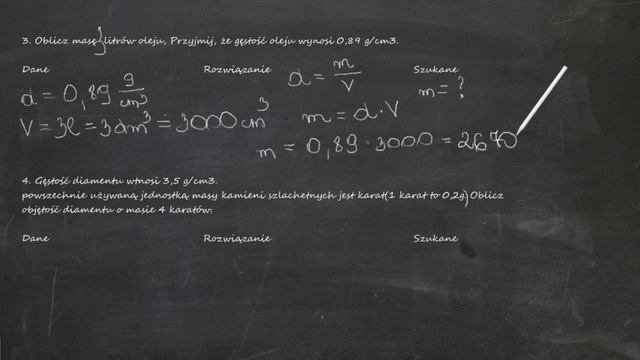 3. Oblicz masę 3 litrów oleju, Przyjmij, że gęstość oleju wynosi 0,89 g/cm3.
Dane Rozwiązanie Szukane
d = 0,89 g/cm³ d = m/V m = ?
V = 3l = 3dm³ = 3000 cm³ m = d·V
m = 0,89 · 3000 = 2670
4. Gęstość diamentu wtnosi 3,5 g/cm3.
powszechnie używaną jednostką masy kamieni szlachetnych jest karat(1 karat to 0,2g) Oblicz
objętość diamentu o masie 4 karatów.
Dane Rozwiązanie Szukane